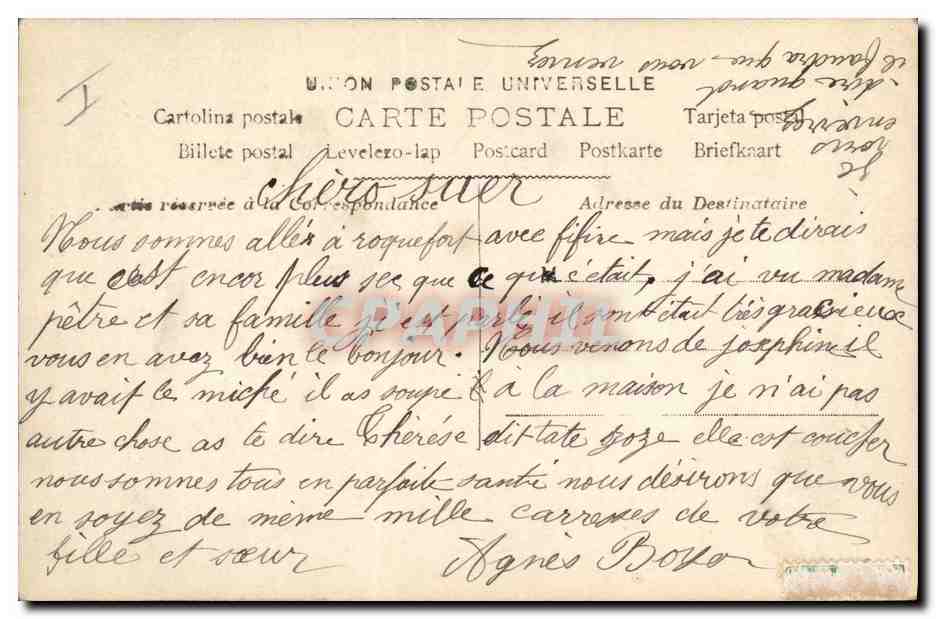 UNION POSTALE UNIVERSELLE
Cartolina postale CARTE POSTALE Tarjeta postal
Billete postal Levelezo-lap Postcard Postkarte Briefkaart
chère sœur
Partie réservée à la Correspondance Adresse du Destinataire
Nous somnes allér à roquefort avec fifire mais je te dirais
que cest encor plus sec que ce que c'était, j'ai vu madame
pêtre et sa famille je est parlé il sont était très gracieux
vous en avez bien le bonjour. Nous venons de josphin il
y avait le miché il as soupé à la maison je n'ai pas
autre chose as te dire Thérése dit tate goze elle est coucher
nous somnes tous en parfaite santé nous désirons que vous
en soyez de même mille carresses de votre
fille et sœur Agnès Boyo
Je vous
enverrez
dire quand
il faudra que vous vennez
CPAPHIL